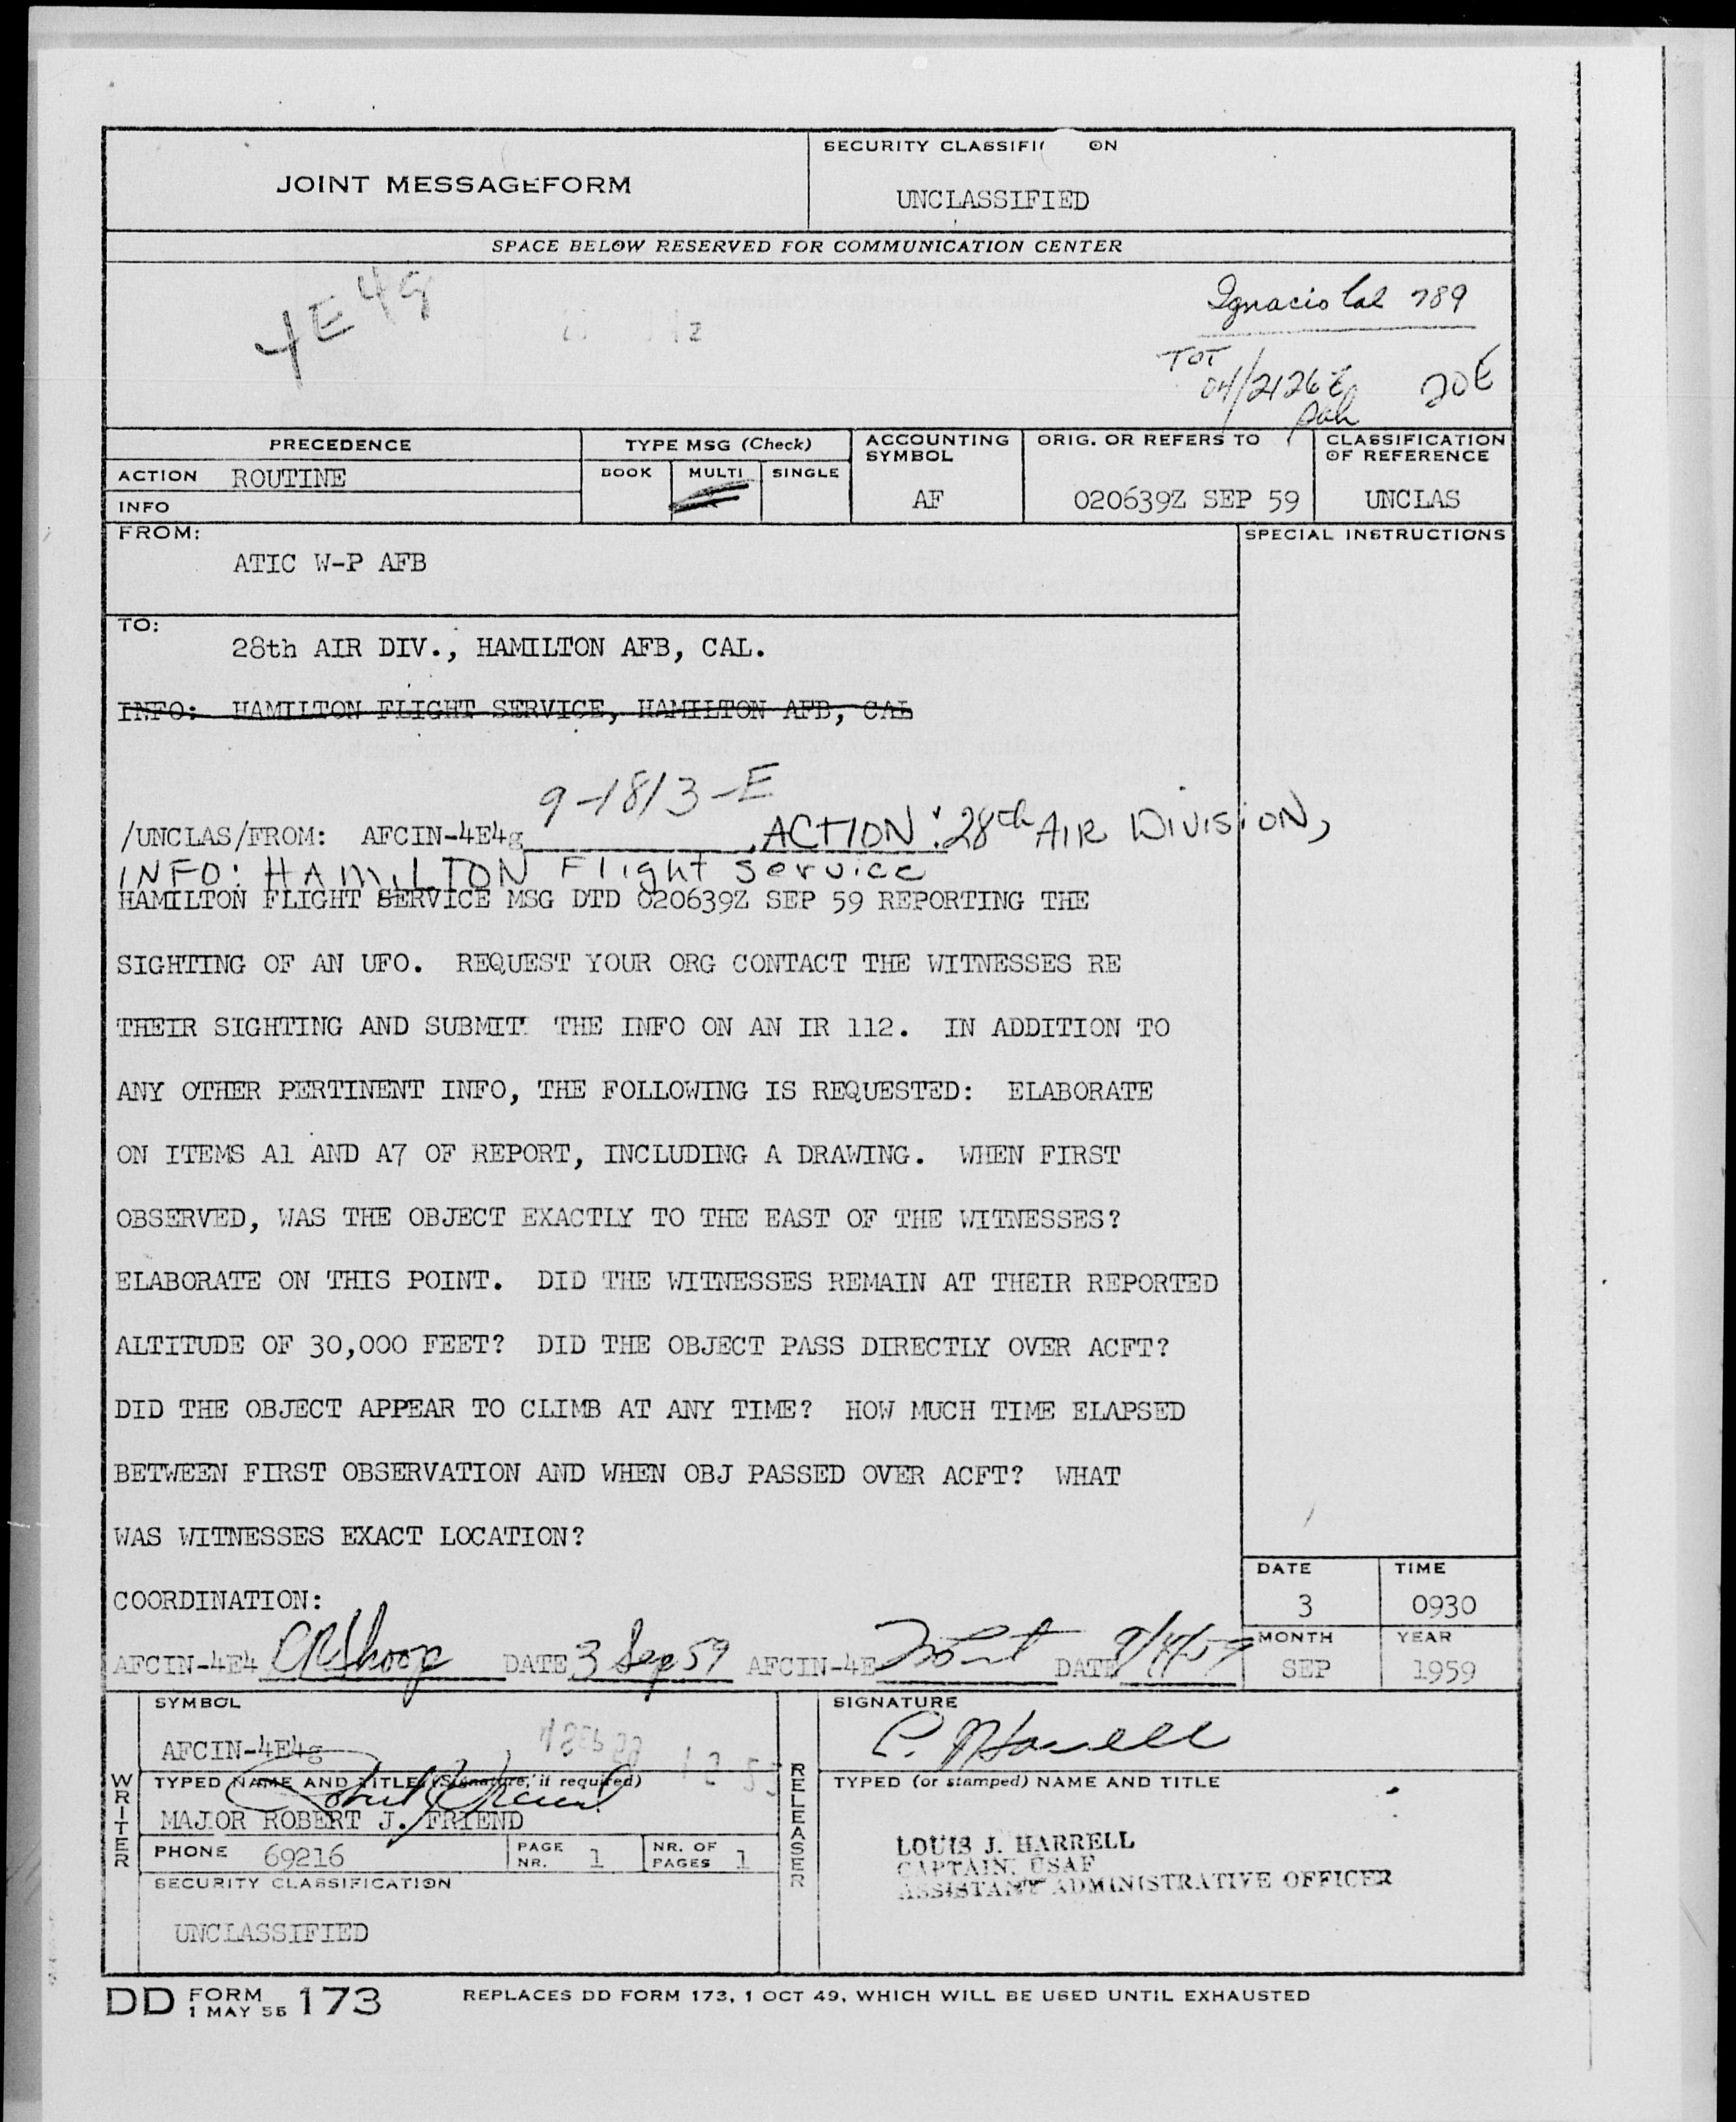 JOINT MESSAGEFORM
SECURITY CLASSIFI ON
UNCLASSIFIED
SPACE BELOW RESERVED FOR COMMUNICATION CENTER
4E4g
Ignacio Cal 789
TOT
04/2126Z
20E
PRECEDENCE
TYPE MSG (Check)
ACCOUNTING SYMBOL
ORIG. OR REFERS TO
CLASSIFICATION OF REFERENCE
ACTION ROUTINE
BOOK MULTI SINGLE
AF
020639Z SEP 59
UNCLAS
INFO
FROM:
SPECIAL INSTRUCTIONS
ATIC W-P AFB
TO:
28th AIR DIV., HAMILTON AFB, CAL.
INFO: HAMILTON FLIGHT SERVICE, HAMILTON AFB, CAL
9-1813-E
/UNCLAS/FROM: AFCIN-4E4g . ACTION: 28th AIR DIVISION,
INFO: HAMILTON Flight Service
HAMILTON FLIGHT SERVICE MSG DTD 020639Z SEP 59 REPORTING THE
SIGHTING OF AN UFO. REQUEST YOUR ORG CONTACT THE WITNESSES RE
THEIR SIGHTING AND SUBMIT THE INFO ON AN IR 112. IN ADDITION TO
ANY OTHER PERTINENT INFO, THE FOLLOWING IS REQUESTED: ELABORATE
ON ITEMS A1 AND A7 OF REPORT, INCLUDING A DRAWING. WHEN FIRST
OBSERVED, WAS THE OBJECT EXACTLY TO THE EAST OF THE WITNESSES?
ELABORATE ON THIS POINT. DID THE WITNESSES REMAIN AT THEIR REPORTED
ALTITUDE OF 30,000 FEET? DID THE OBJECT PASS DIRECTLY OVER ACFT?
DID THE OBJECT APPEAR TO CLIMB AT ANY TIME? HOW MUCH TIME ELAPSED
BETWEEN FIRST OBSERVATION AND WHEN OBJ PASSED OVER ACFT? WHAT
WAS WITNESSES EXACT LOCATION?
DATE 3
TIME 0930
COORDINATION:
MONTH SEP
YEAR 1959
AFCIN-4E4 CRShoop DATE 3 Sep 59 AFCIN-4E DATE 9/4/59
SYMBOL
AFCIN-4E4g
SIGNATURE
WRITER
TYPED NAME AND TITLE (Signature, if required)
MAJOR ROBERT J. FRIEND
RELEASER
TYPED (or stamped) NAME AND TITLE
PHONE 69216
PAGE NR. 1
NR. OF PAGES 1
LOUIS J. HARRELL
CAPTAIN, USAF
ASSISTANT ADMINISTRATIVE OFFICER
SECURITY CLASSIFICATION
UNCLASSIFIED
DD FORM 1 MAY 55 173
REPLACES DD FORM 173, 1 OCT 49, WHICH WILL BE USED UNTIL EXHAUSTED